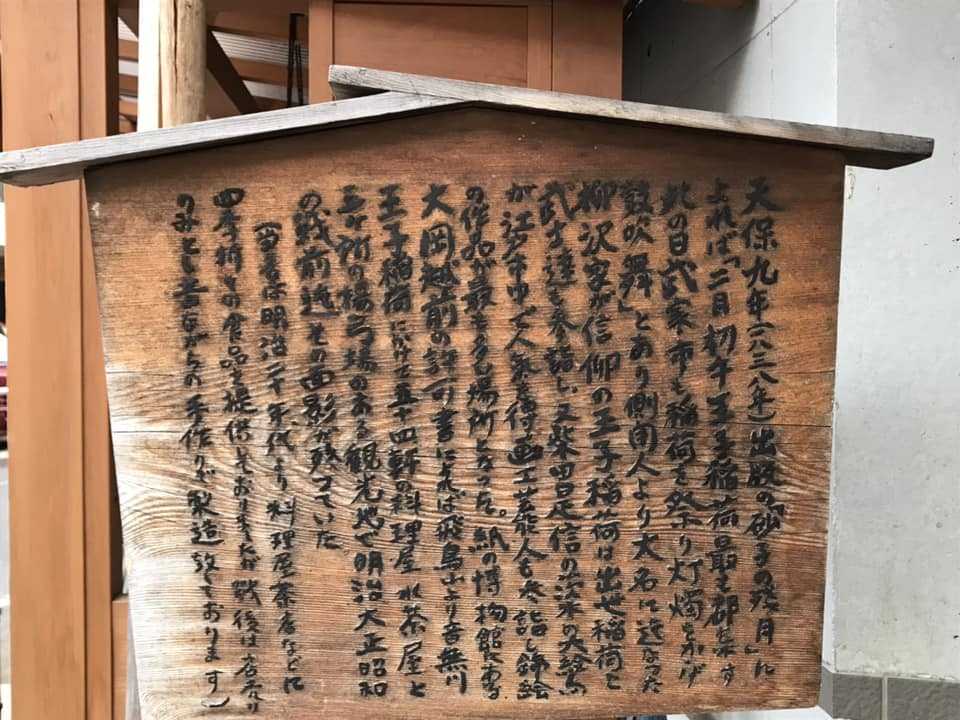 天保九年(一八三八年)出版の『砂子の残月』に
よれば「二月初午王子稲荷最も群を来す
此の日武家市も稲荷を祭り灯燭をかげ
鼓吹舞」とあり側用人より大名に迄なった
柳沢家が信仰の王子稲荷は出世稲荷と
武士達も参詣し、又柴田是信の茨の大絵馬
が江戸市中で人気を得画工芸能人も参詣し錦絵
の作品が最も多い場所となった。紙の博物館にある
大岡越前の許可書によれば飛鳥山より音無川
王子稲荷にかけて五十四軒の料理屋水茶屋と
三ヶ所の楊弓場のある観光地で明治大正昭和
の戦前迄その面影が残っていた
(当舎は明治二十年代より料理屋茶店などに
四季折々の食品を提供しておりましたが戦後は店売り
のみとし昔ながらの手作りで製造致しております)